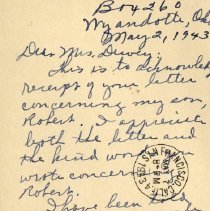 Box 260
Wyandotte, Okla
May 2, 1943
Dear Mrs. Dewey:
This is to acknowledge
receipt of your letter
concerning my son,
Robert. I appreciate
both the letter and
the kind wor
wrote concern
Robert.
I have been
SAN FRANCISCO CALIF.